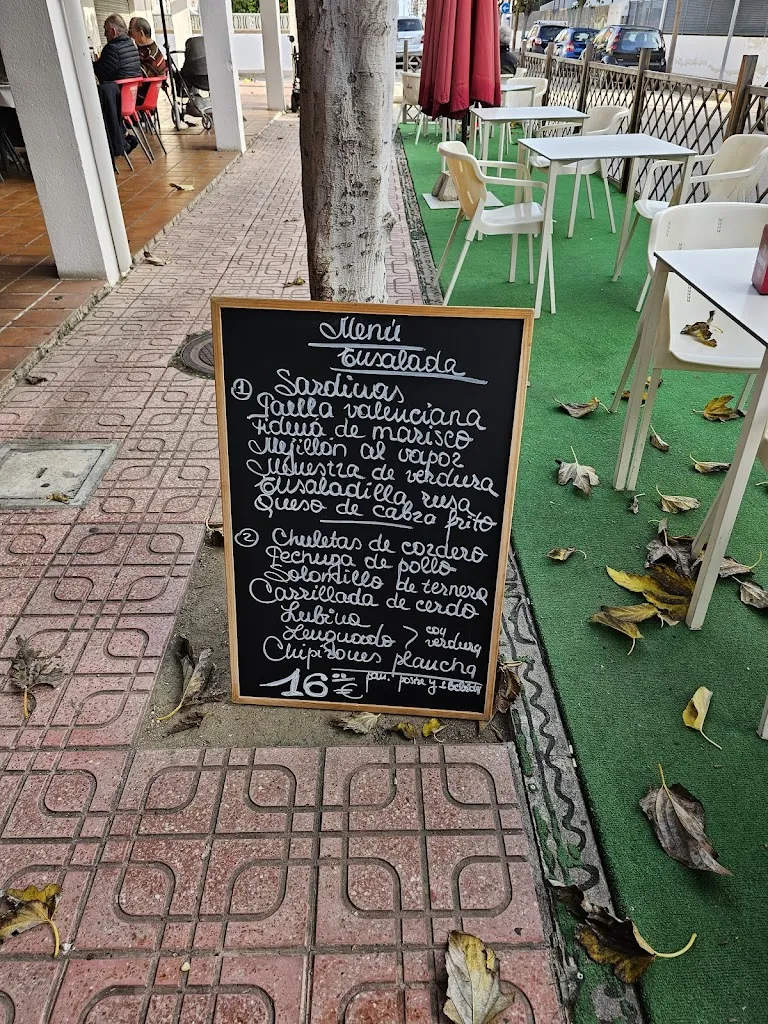 Menú
Ensalada
① Sardinas
Paella valenciana
Fideuá de marisco
Mejillón al vapor
Menestra de verdura
Ensaladilla rusa
Queso de cabra frito
② Chuletas de cordero
Pechuga de pollo
Solomillo de ternera
Carrillada de cerdo
Lubina
Lenguado > con verdura
Chipirones plancha
16 € pan, postre y bebida